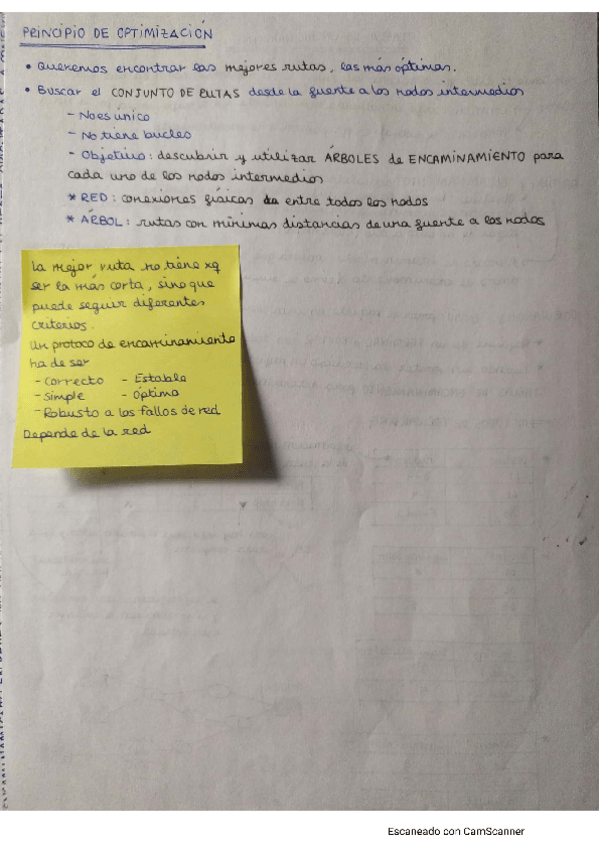 PRINCIPIO DE OPTIMIZACIÓN
• Queremos encontrar las mejores rutas, las más óptimas.
• Buscar el CONJUNTO DE RUTAS desde la fuente a los nodos intermedios
- No es único
- No tiene bucles
- Objetivo: descubrir y utilizar ÁRBOLES de ENCAMINAMIENTO para
cada uno de los nodos intermedios
* RED: conexiones físicas entre todos los nodos
* ÁRBOL: rutas con mínimas distancias de una fuente a los nodos
La mejor ruta no tiene xq
ser la más corta, sino que
puede seguir diferentes
criterios.
Un protoco de encaminamiento
ha de ser
- Correcto - Estable
- Simple - Óptimo
- Robusto a los fallos de red
Depende de la red
Escaneado con CamScanner